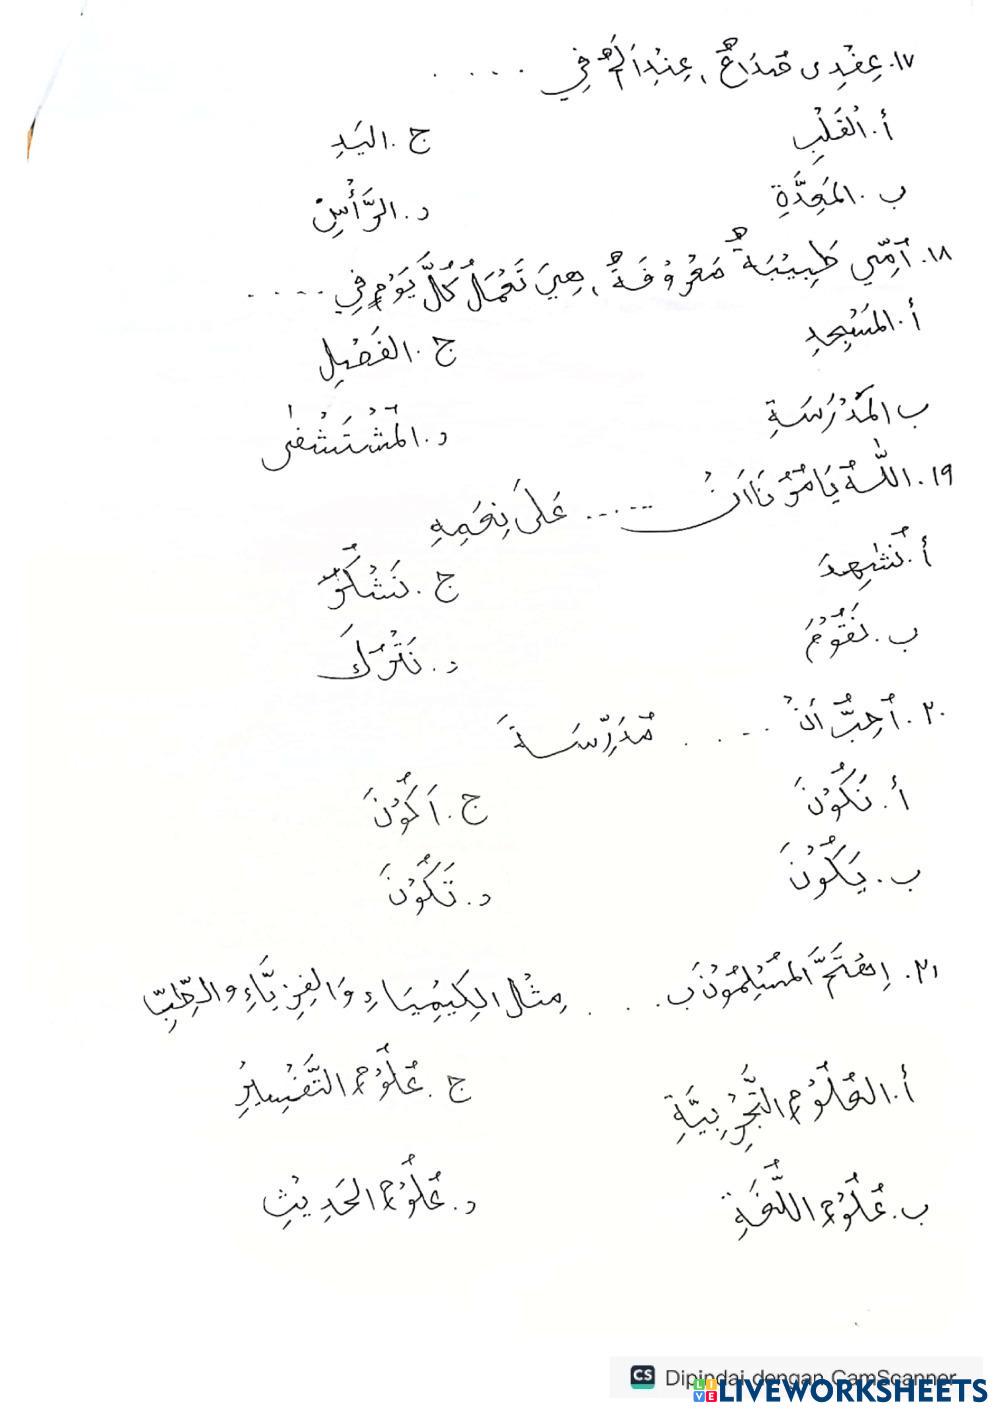 ١٧. عِنْدِى صُدَاعٌ، عِنْدِ اَلَمٌ فِي ....
أ. الْقَلْبِ
ج. اليَدِ
ب. المَعِدَّةِ
د. الرَّأْسِ
١٨. اُمِّي طَبِيْبَةٌ مَعْرُوْفَةٌ، هِيَ تَعْمَلُ كُلَّ يَوْمٍ فِي ....
أ. المَسْجِدِ
ج. الفَصْلِ
ب المَدْرَسَةِ
د. المُسْتَشْفٰى
١٩. اللّٰهُ يَامُرُنَا اَنْ ..... عَلَى نِعَمِهِ
أ. نَشْهِدَ
ج. نَشْكُرَ
ب. نَقُوْمَ
د. نَتْرُكَ
٢٠. اُحِبُّ اَنْ .... مُدَرِّسَةً
أ. نَكُوْنَ
ج. اَكُوْنَ
ب. يَكُوْنَ
د. تَكُوْنَ
٢١. اِهْتَمَّ المُسْلِمُوْنَ بِ .... مِثْلِ الكِيْمِيَاءِ وَالفِزِيَّاءِ والطِّبِّ
أ. العُلُوْمِ التَّجْرِبِيَّةِ
ج. عُلُوْمِ التَّفْسِيْرِ
ب. عُلُوْمِ اللُّغَةِ
د. عُلُوْمِ الحَدِيْثِ
CS Dipindai dengan CamScanner
LIVEWORKSHEETS